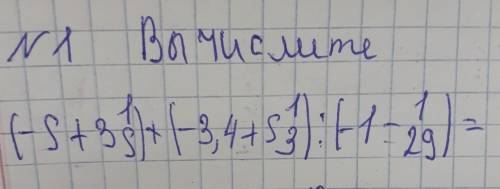 N1 Вычислите
(-5+3 1/5)+(-3,4+5 1/3):(-1-1/29)=